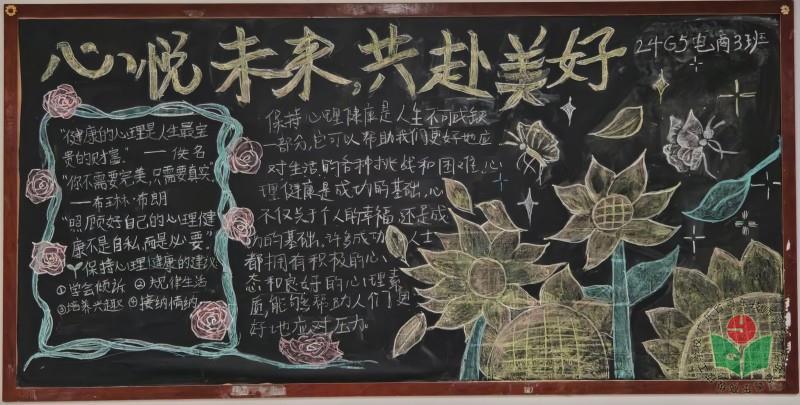 心悦未来,共赴美好
24G5电商3班
"健康的心理是人生最宝
贵的财富." ——佚名
"你不需要完美,只需要真实"
——布琳·布朗
"照顾好自己的心理健
康不是自私,而是必要."
保持心理健康的建议
①学会倾诉 ②规律生活
③培养兴趣 ④接纳情绪
保持心理健康是人生不可或缺
一部分,它可以帮助我们更好地应
对生活的各种挑战和困难,心
理健康是成功的基础,心
不仅关于个人的幸福,还是成
功的基础。许多成功人士
都拥有积极的心
态和良好的心理素
质,能够帮助人们更
好地应对压力。